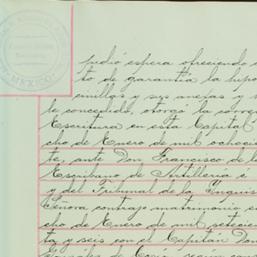 pudió espera ofreciendo
to de garantía la hipo
cinillas y sus anexas y
le concedido, otorgó la corres
Escritura en esta Capital
cho de Enero de mil ochocie
te, ante Don Francisco de l
Escribano de Artillería é
y del Tribunal de la Inquis
Señora contrajo matrimonio e
cho de Enero de mil setecie
ta y seis con el Capitan Don